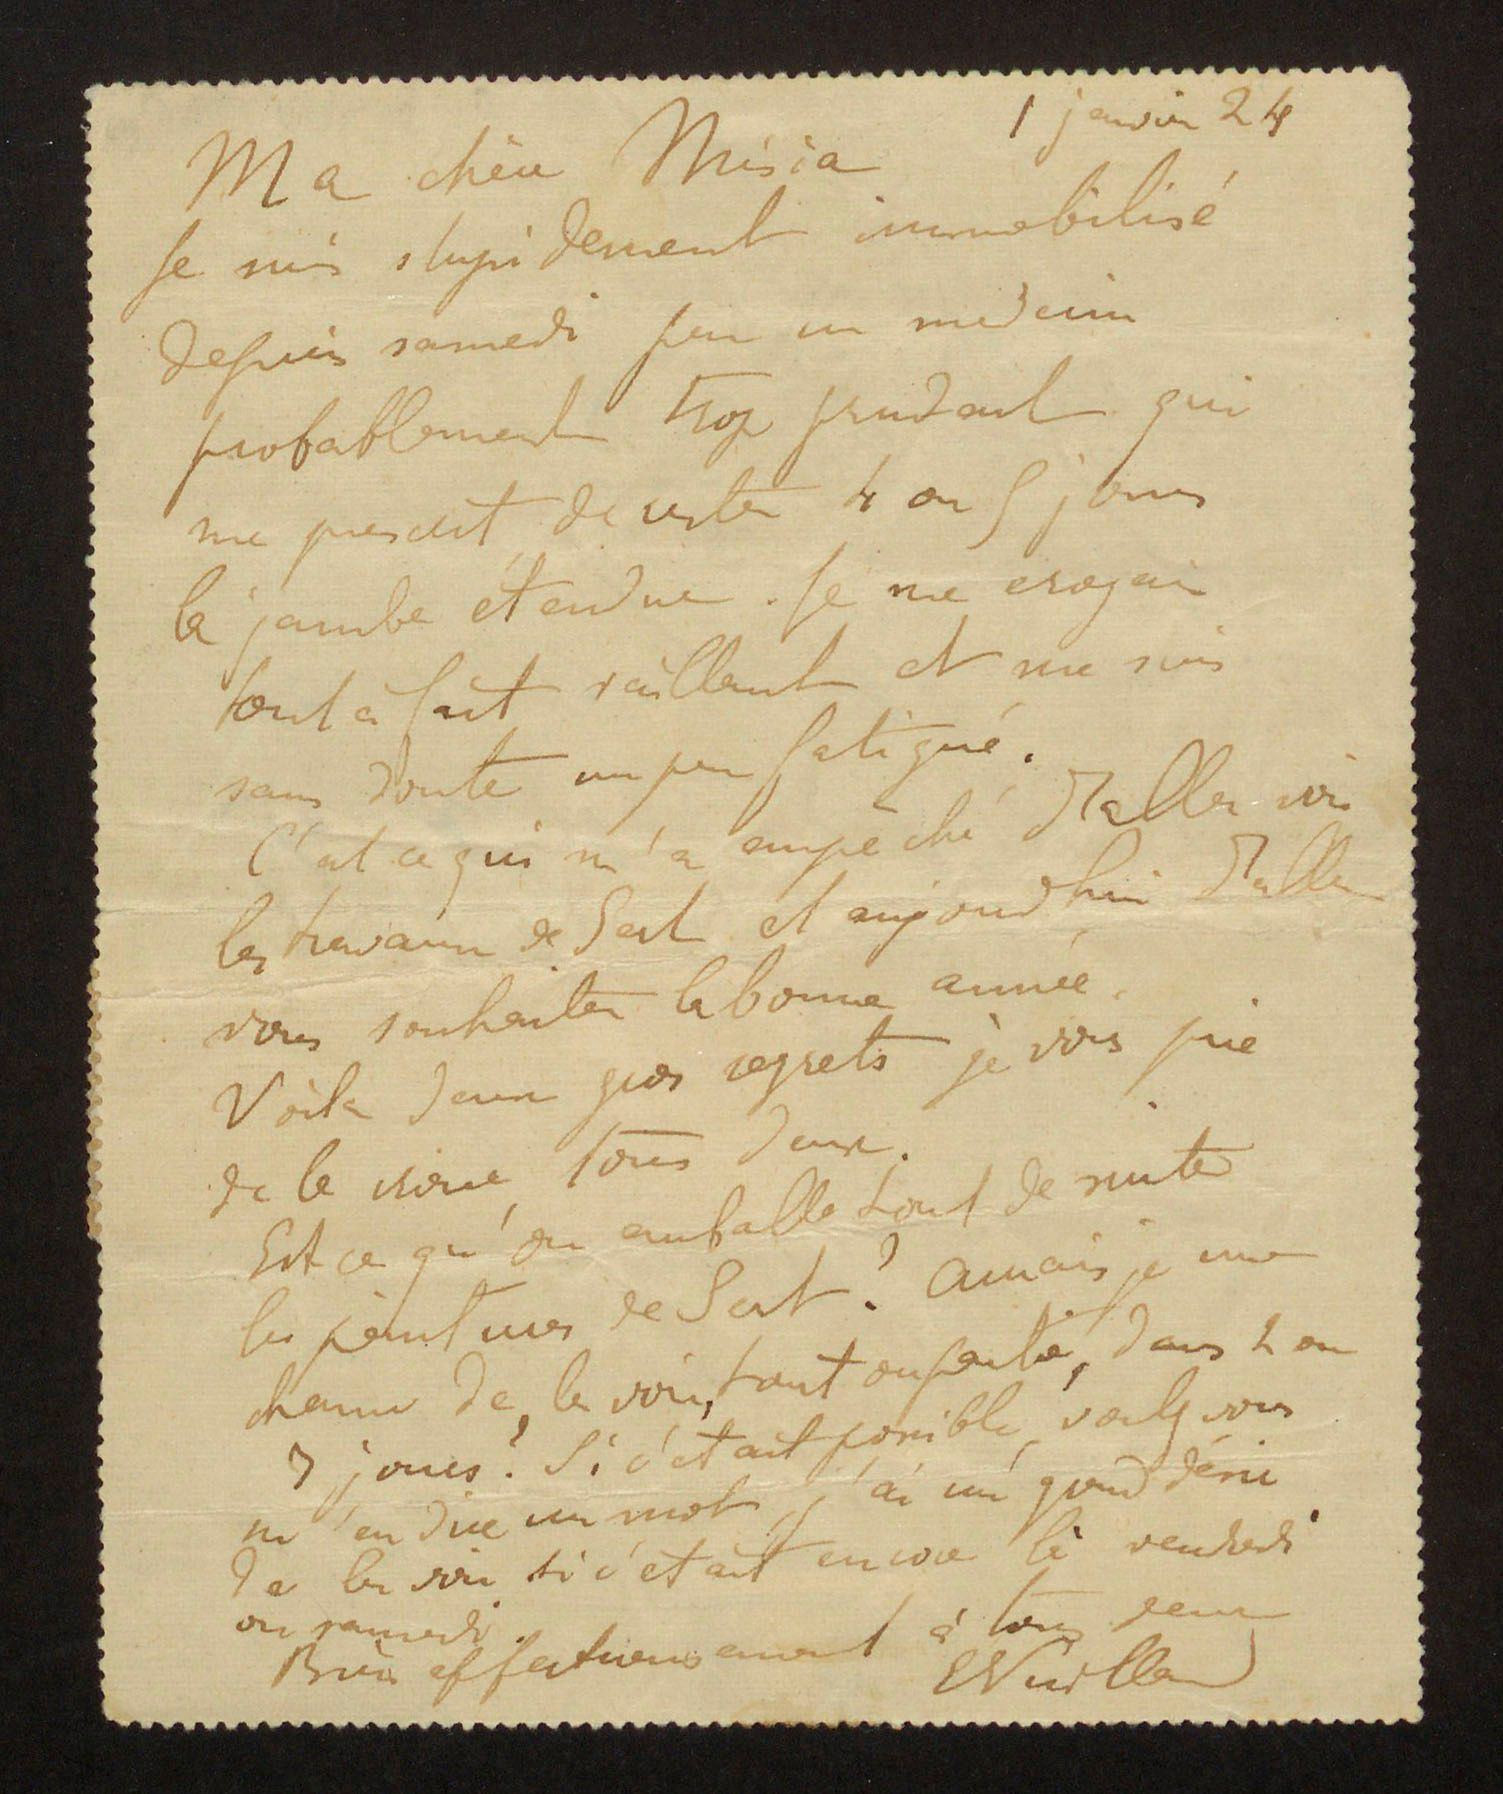 1 janvier 24
Ma chère Misia
Je suis stupidement immobilisé
depuis samedi par un medecin
probablement trop prudent qui
me prescrit de rester 4 ou 5 jours
la jambe étendue. Je me croyais
tout à fait vaillant et me suis
sans doute un peu fatigué.
C'est ce qui m'a empêché d'aller voir
les travaux de Sert et aujourd'hui d'aller
vous souhaiter la bonne année.
Voila deux gros regrets je vous prie
de le croire tous deux.
Est ce qu'on emballe tout de suite
les peintures de Sert? Aurais je une
chance de les voir, tout ou partie, dans 2 ou
3 jours? Si c'etait possible voulez vous
m'en dire un mot, j'ai un grand désir
de les voir si c'etait encore là vendredi
ou samedi.
Bien affectueusement à tous deux
EVuillard